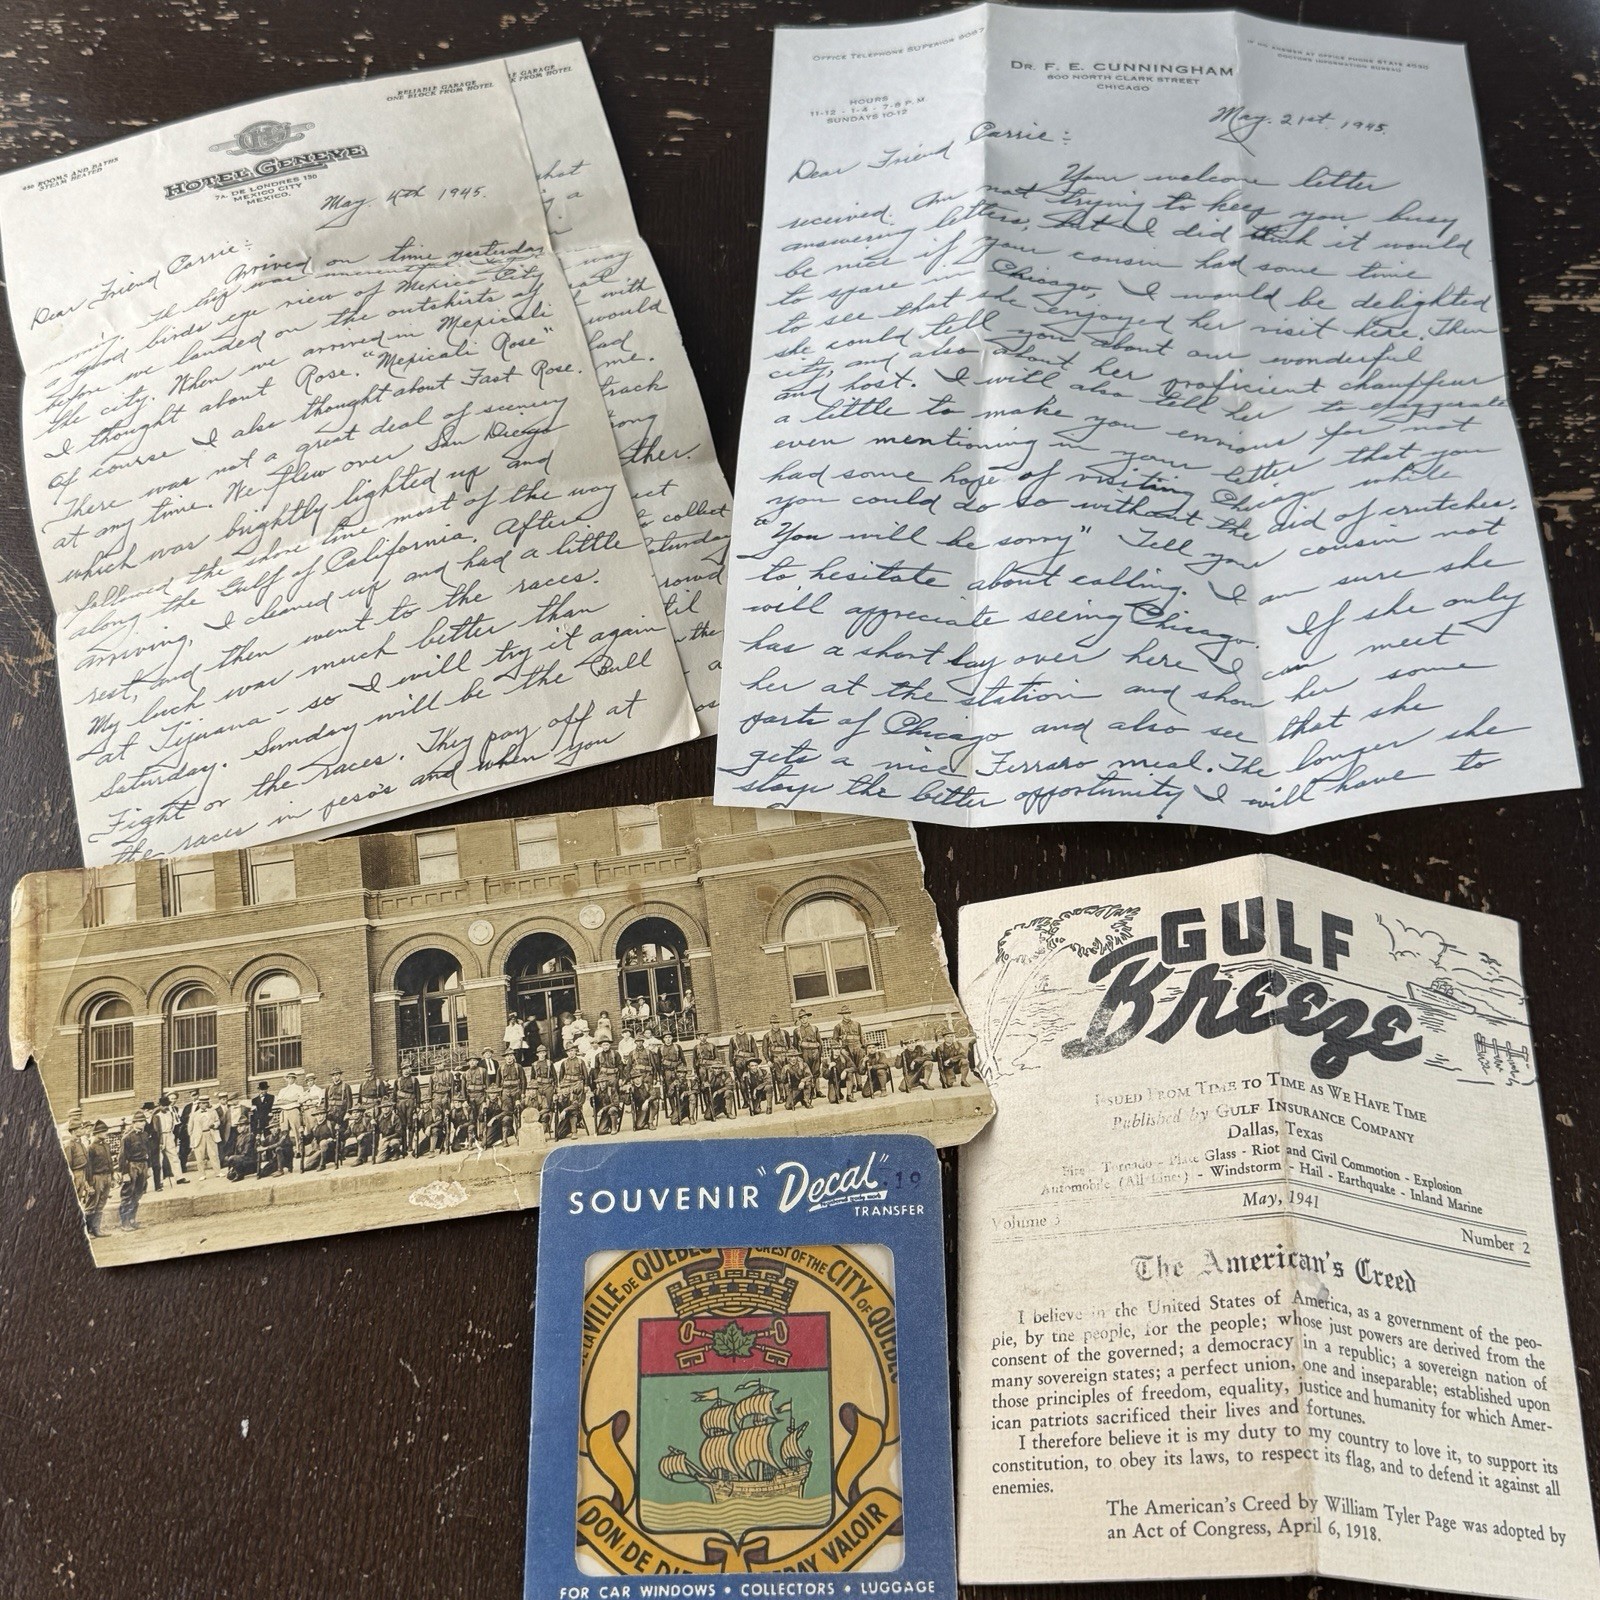 RELIABLE GARAGE
ONE BLOCK FROM HOTEL
E GARAGE
K FROM HOTEL
450 ROOMS AND BATHS
STEAM HEATED
HOTEL GENEVE
7A. DE LONDRES 130
MEXICO CITY
MEXICO.
May. 4th 1945.
Dear Friend Carrie:
Arrived on time yesterday
a good birds eye view of Mexico City
before we landed on the outskirts of
the city. When we arrived in Mexicali
I thought about Rose. "Mexicali Rose"
Of course I also thought about Fast Rose.
There was not a great deal of scenery
at any time. We flew over San Diego
which was brightly lighted up and
followed the shore line most of the way
along the Gulf of California. After
arriving, I cleaned up and had a little
rest, and then went to the races.
My luck was much better than
at Tijuana - so I will try it again
Saturday. Sunday will be the Bull
Fight or the races. They pay off at
the races in peso's and when you
what
a
way
with
would
had
me.
track
ther.
collect
Saturday
rowd
til
the
a
OFFICE TELEPHONE SUPERIOR 9067
DR. F. E. CUNNINGHAM
800 NORTH CLARK STREET
CHICAGO
IF NO ANSWER AT OFFICE PHONE STATE
DOCTORS INFORMATION BUREAU
HOURS
11-12 - 1-4 - 7-8 P.M
SUNDAYS 10-12
May. 21st. 1945.
Dear Friend Carrie:
Your welcome letter
received. Am not trying to keep you busy
answering letters, but I did think it would
be nice if your cousin had some time
to spare in Chicago, I would be delighted
to see that she enjoyed her visit here. Then
she could tell you about our wonderful
city, and also about her proficient chauffeur
and host. I will also tell her to exaggerate
a little to make you envious for not
even mentioning in your letter that you
had some hope of visiting Chicago while
you could do so without the aid of crutches.
"You will be sorry" Tell your cousin not
to hesitate about calling. I am sure she
will appreciate seeing Chicago. If she only
has a short lay over here I can meet
her at the station and show her some
parts of Chicago and also see that she
gets a nice Ferraro meal. The longer she
stays the better opportunity I will have to
GULF
Breeze
ISSUED FROM TIME TO TIME AS WE HAVE TIME
Published by GULF INSURANCE COMPANY
Dallas, Texas
Fire - Tornado - Plate Glass - Riot and Civil Commotion - Explosion
Automobile (All Lines) - Windstorm - Hail - Earthquake - Inland Marine
Volume 3
May, 1941
Number 2
The American's Creed
I believe in the United States of America, as a government of the peo-
ple, by the people, for the people; whose just powers are derived from the
consent of the governed; a democracy in a republic; a sovereign nation of
many sovereign states; a perfect union, one and inseparable; established upon
those principles of freedom, equality, justice and humanity for which Amer-
ican patriots sacrificed their lives and fortunes.
I therefore believe it is my duty to my country to love it, to support its
constitution, to obey its laws, to respect its flag, and to defend it against all
enemies.
The American's Creed by William Tyler Page was adopted by
an Act of Congress, April 6, 1918.
SOUVENIR "Decal"
TRANSFER
.19
DE LA VILLE DE QUEBEC
CREST OF THE CITY OF QUEBEC
DON DE DI
RAY VALOIR
FOR CAR WINDOWS • COLLECTORS • LUGGAGE